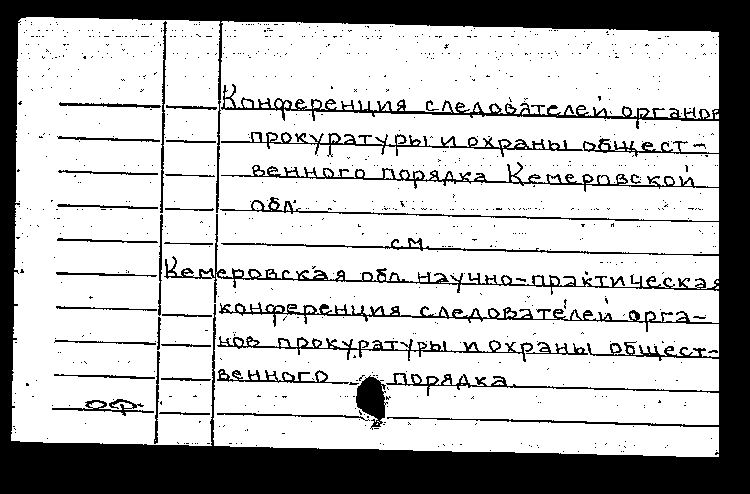 Конференция следователей органов
прокуратуры и охраны общест-
венного порядка Кемеровской
обл.
см.
Кемеровская обл. научно-практическая
конференция следователей орга-
нов прокуратуры и охраны общест-
венного порядка.
ОФ